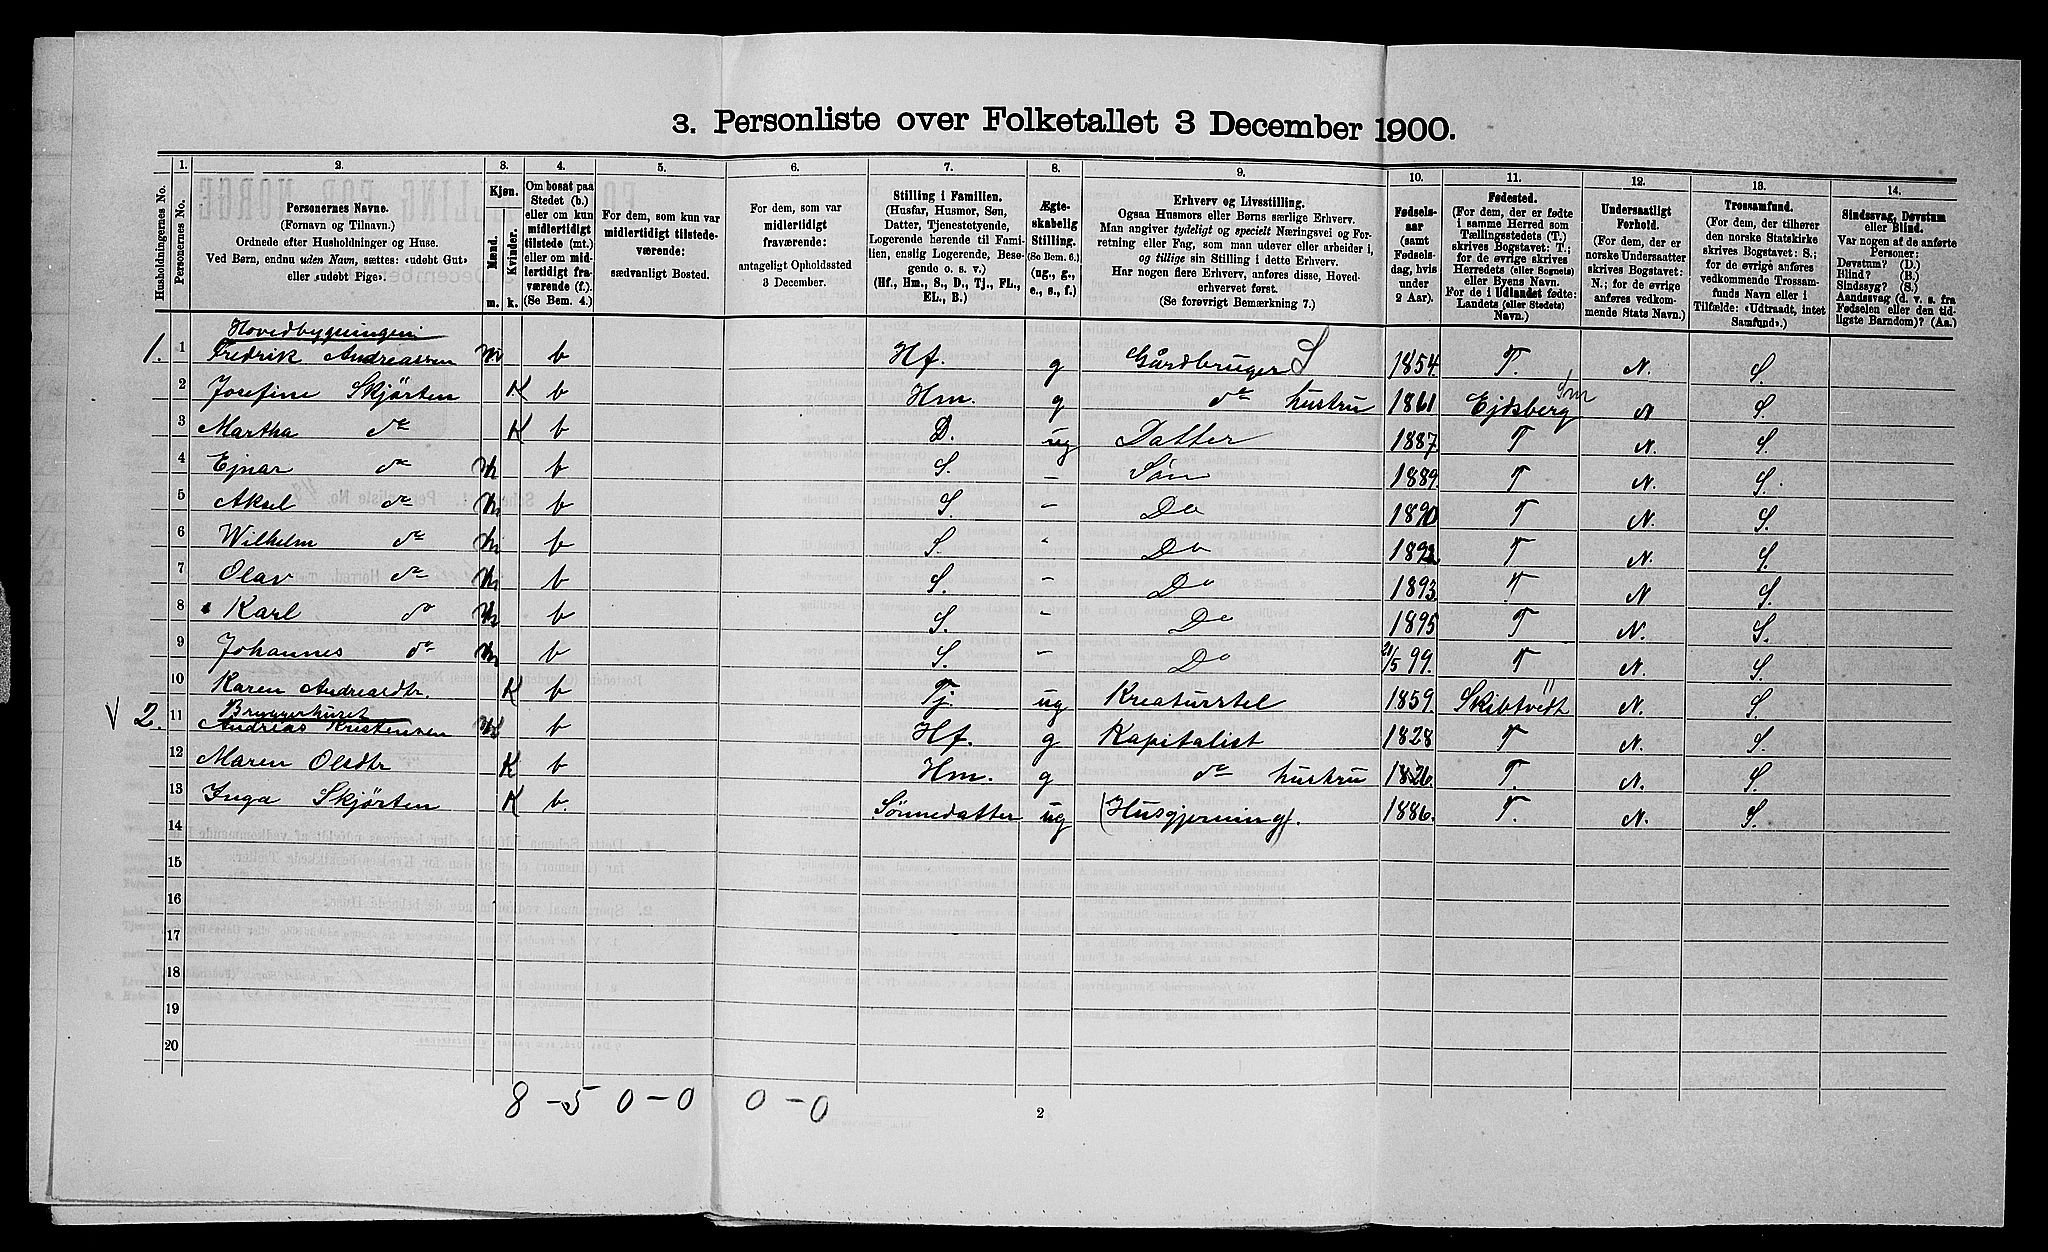 3. Personliste over Folketallet 3 December 1900.
1. 2. 3. 4. 5. 6. 7. 8. 9. 10. 11. 12. 13. 14.
Husholdningernes No.
Personernes No.
Personernes Navne.
(Fornavn og Tilnavn.)
Ordnede efter Husholdninger og Huse.
Ved Børn, endnu uden Navn, sættes: «udøbt Gut»
eller «udøbt Pige».
Kjøn.
Mænd.
Kvinder.
m. k.
Om bosat paa
Stedet (b.)
eller om kun
midlertidigt
tilstede (mt.)
eller om mid-
lertidigt fra-
værende (f.).
(Se Bem. 4.)
For dem, som kun var
midlertidigt tilstede-
værende:
sædvanligt Bosted.
For dem, som var
midlertidigt
fraværende:
antageligt Opholdssted
3 December.
Stilling i Familien.
(Husfar, Husmor, Søn,
Datter, Tjenestetyende,
Logerende hørende til Fami-
lien, enslig Logerende, Besø-
gende o. s. v.)
(Hf., Hm., S., D., Tj., FL.,
EL., B.)
Ægte-
skabelig
Stilling.
(Se Bem. 6.)
(ug., g.,
e., s., f.)
Erhverv og Livsstilling.
Ogsaa Husmors eller Børns særlige Erhverv.
Man angiver tydeligt og specielt Næringsvei og For-
retning eller Fag, som man udøver eller arbeider i,
og tillige sin Stilling i dette Erhverv.
Har nogen flere Erhverv, anføres disse, Hoved-
erhvervet først.
(Se forøvrigt Bemærkning 7.)
Fødsels-
aar
(samt
Fødsels-
dag, hvis
under
2 Aar).
Fødested.
(For dem, der er fødte
i samme Herred som
Tællingsstedets (T.)
skrives Bogstavet: T.;
for de øvrige skrives
Herredets (eller Sognets)
eller Byens Navn.
For de i Udlandet fødte:
Landets (eller Stedets)
Navn.)
Undersaatligt
Forhold.
(For dem, der er
norske Undersaatter
skrives Bogstavet:
N.; for de øvrige
anføres vedkom-
mende Stats Navn.)
Trossamfund.
(For dem, der tilhører
den norske Statskirke
skrives Bogstavet: S.;
for de øvrige anføres
vedkommende Trossam-
funds Navn eller i
Tilfælde: «Udtraadt, intet
Samfund».)
Sindssvag, Døvstum
eller Blind.
Var nogen af de anførte
Personer:
Døvstum? (D.)
Blind? (B.)
Sindssyg? (S.)
Aandssvag (d. v. s. fra
Fødselen eller den tid-
ligste Barndom)? (Aa.)
Hovedbygningen
1. 1 Fredrik Andreassen m b Hf. g Gårdbruger S 1854. T. N. S.
2 Josefine Skjørten K b Hm. g do hustru 1861 Ejdsberg Sm N S.
3 Martha do K b D. ug Datter 1887. T N. S.
4 Ejnar do m b S. - Søn 1889. T N. S.
5 Aksel do m b S. - Do 1890 T N. S.
6 Wilhelm do m b S. - Do 1892 T N. S.
7 Olav do m b S. - Do 1893. T N S.
8 Karl do m b S. - Do 1895 T N. S.
9 Johannes do m b S. - Do 21/5 99. T N. S.
10 Karen Andreasdtr. K b Tj. ug Kreaturstel 1859. Skibtvedt N. S.
Bryggerhuset
V 2. 11 Andreas Kristensen m b Hf. g Kapitalist 1828 T N. S.
12 Maren Olsdtr K b Hm. g do hustru 1826. T. N. S.
13 Inga Skjørten K b. Sønnedatter ug (Husgjerning). 1886. T. N. S.
14
15
16
17
18
19
20
8 - 5 0 - 0 0 - 0
2